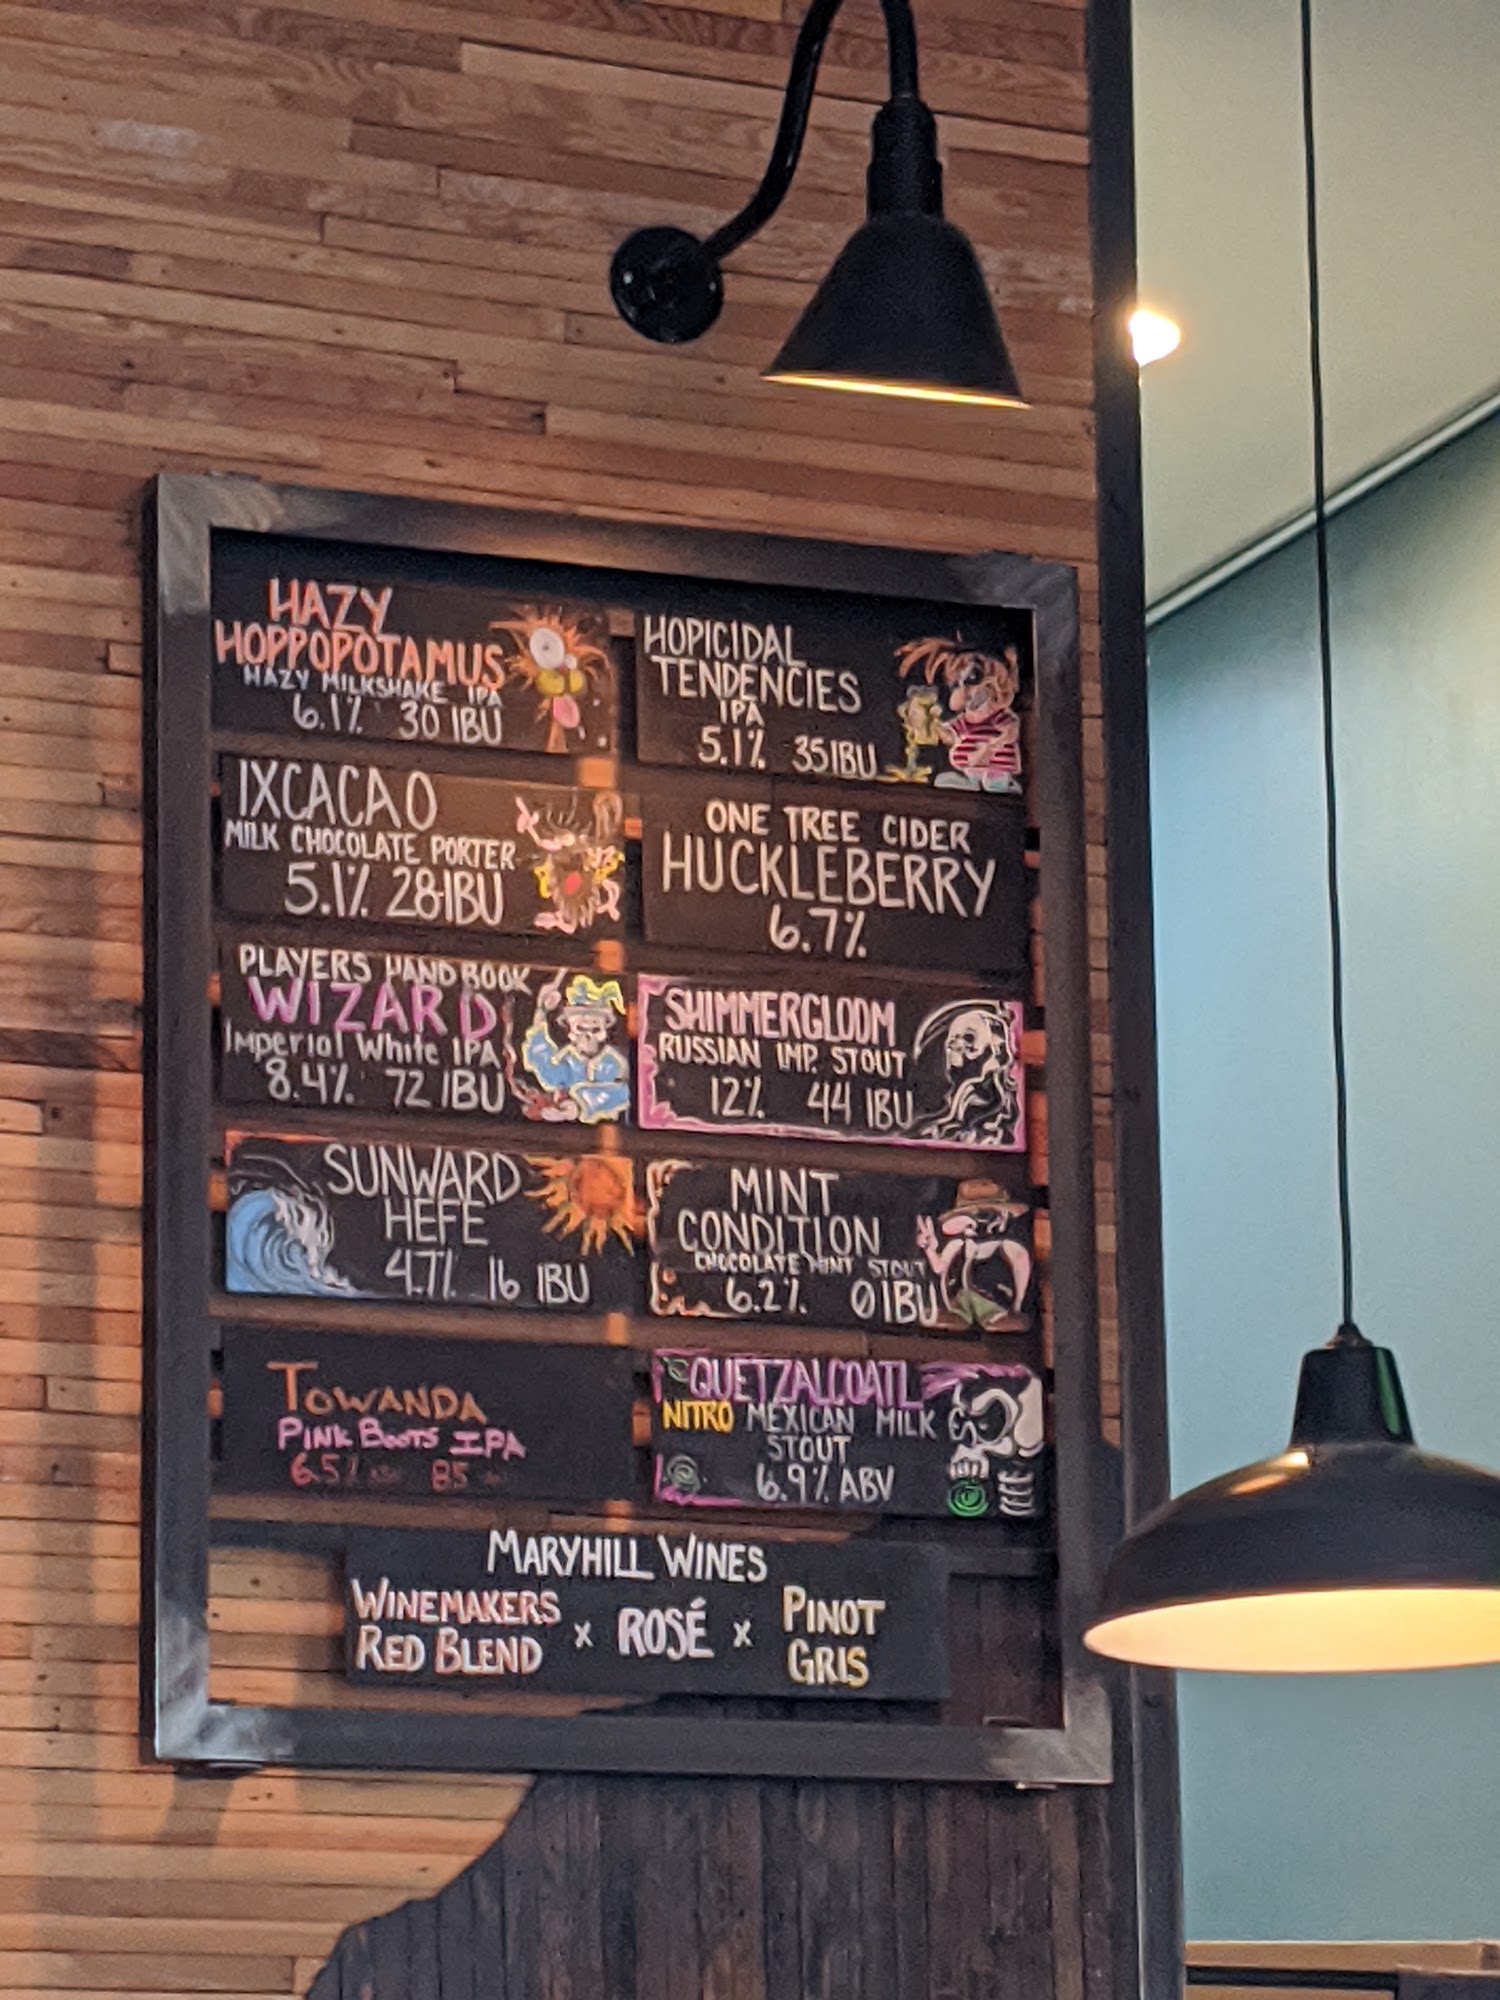 HAZY
HOPPOPOTAMUS
HAZY MILKSHAKE IPA
6.1% 30 IBU
HOPICIDAL
TENDENCIES
IPA
5.1% 35 IBU
IXCACAO
MILK CHOCOLATE PORTER
5.1% 28 IBU
ONE TREE CIDER
HUCKLEBERRY
6.7%
PLAYERS HANDBOOK
WIZARD
Imperial White IPA
8.4% 72 IBU
SHIMMERGLOOM
RUSSIAN IMP. STOUT
12% 44 IBU
SUNWARD
HEFE
4.7% 16 IBU
MINT
CONDITION
CHOCOLATE MINT STOUT
6.2% 0 IBU
TOWANDA
PINK BOOTS IPA
6.5% 85
QUETZALCOATL
NITRO MEXICAN MILK
STOUT
6.9% ABV
MARYHILL WINES
WINEMAKERS
RED BLEND x ROSÉ x PINOT
GRIS